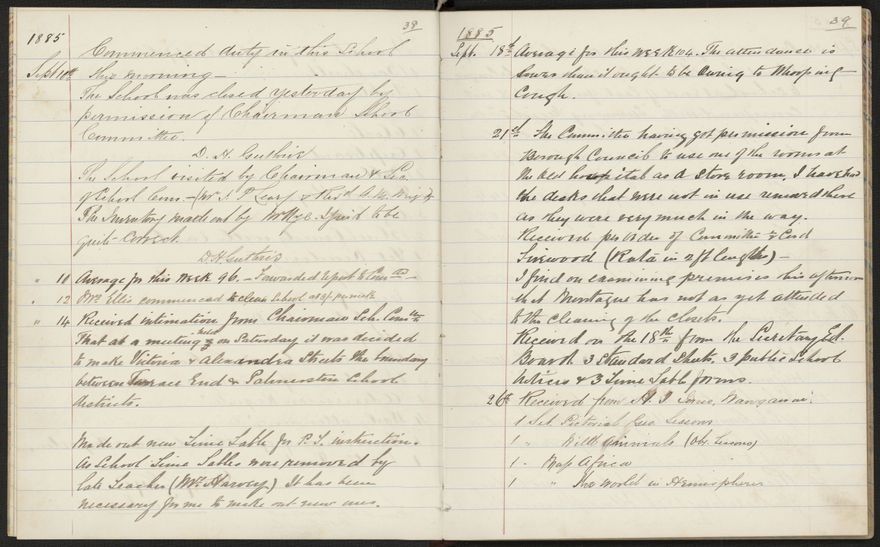 38
1885
Commenced duty in this School
Sept 10th this morning —
The School was closed yesterday by
permission of Chairman School
Committee.
D. H. Guthrie
The School visited by Chairman & Sec.
of School Com. — Mr
The Inventory made out by found to be
quite correct.
D. H. Guthrie
" 10 Average for this week 96. — Forwarded report to Com tee —
" 12 Mrs Ellis commenced to clean School at per week
" 14 Received intimation from Chairman Sch. Com tee
That at a meeting held on Saturday it was decided
to make Victoria & Alexandra Streets the boundary
between Terrace End & Palmerston School
districts.
Made out new Time Table for P. T. instruction.
As School Time Tables were removed by
late Teacher (Mr. Harvey) It has been
necessary for me to make out new ones.
39
1885
Sept. 18th Average for this week 104. The attendance is
lower than it ought to be owing to Whooping
Cough.
21st The Committee having got permission from
Borough Council to use one of the rooms at
the old hospital as a store room, I have had
the desks that were not in use removed there
as they were very much in the way.
Received per order of Committee 2 Cord
Firewood (Rata in 2 ft lengths) —
I find on examining premises this afternoon
that Montague has not as yet attended
to the cleaning of the closets.
Received on the 18th from the Secretary Ed.
Board 3 Standard Sheets, 3 public School
notices & 3 Time Table forms.
26th Received from A. D. Wanganui:
1 Set Pictorial Geo Lessons
1 " Animals (Obj. Lessons)
1 " Map Africa
1 " The World in Hemispheres